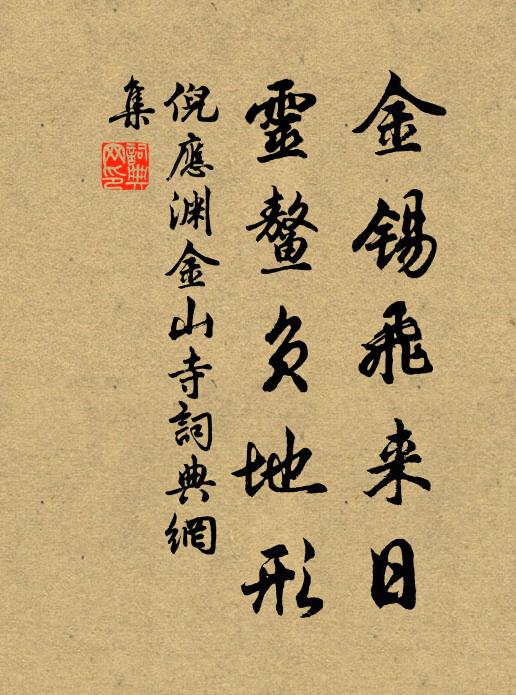 金锡飛来日
靈鼇負地形
倪應渊金山寺詞典網
集
詞典網印